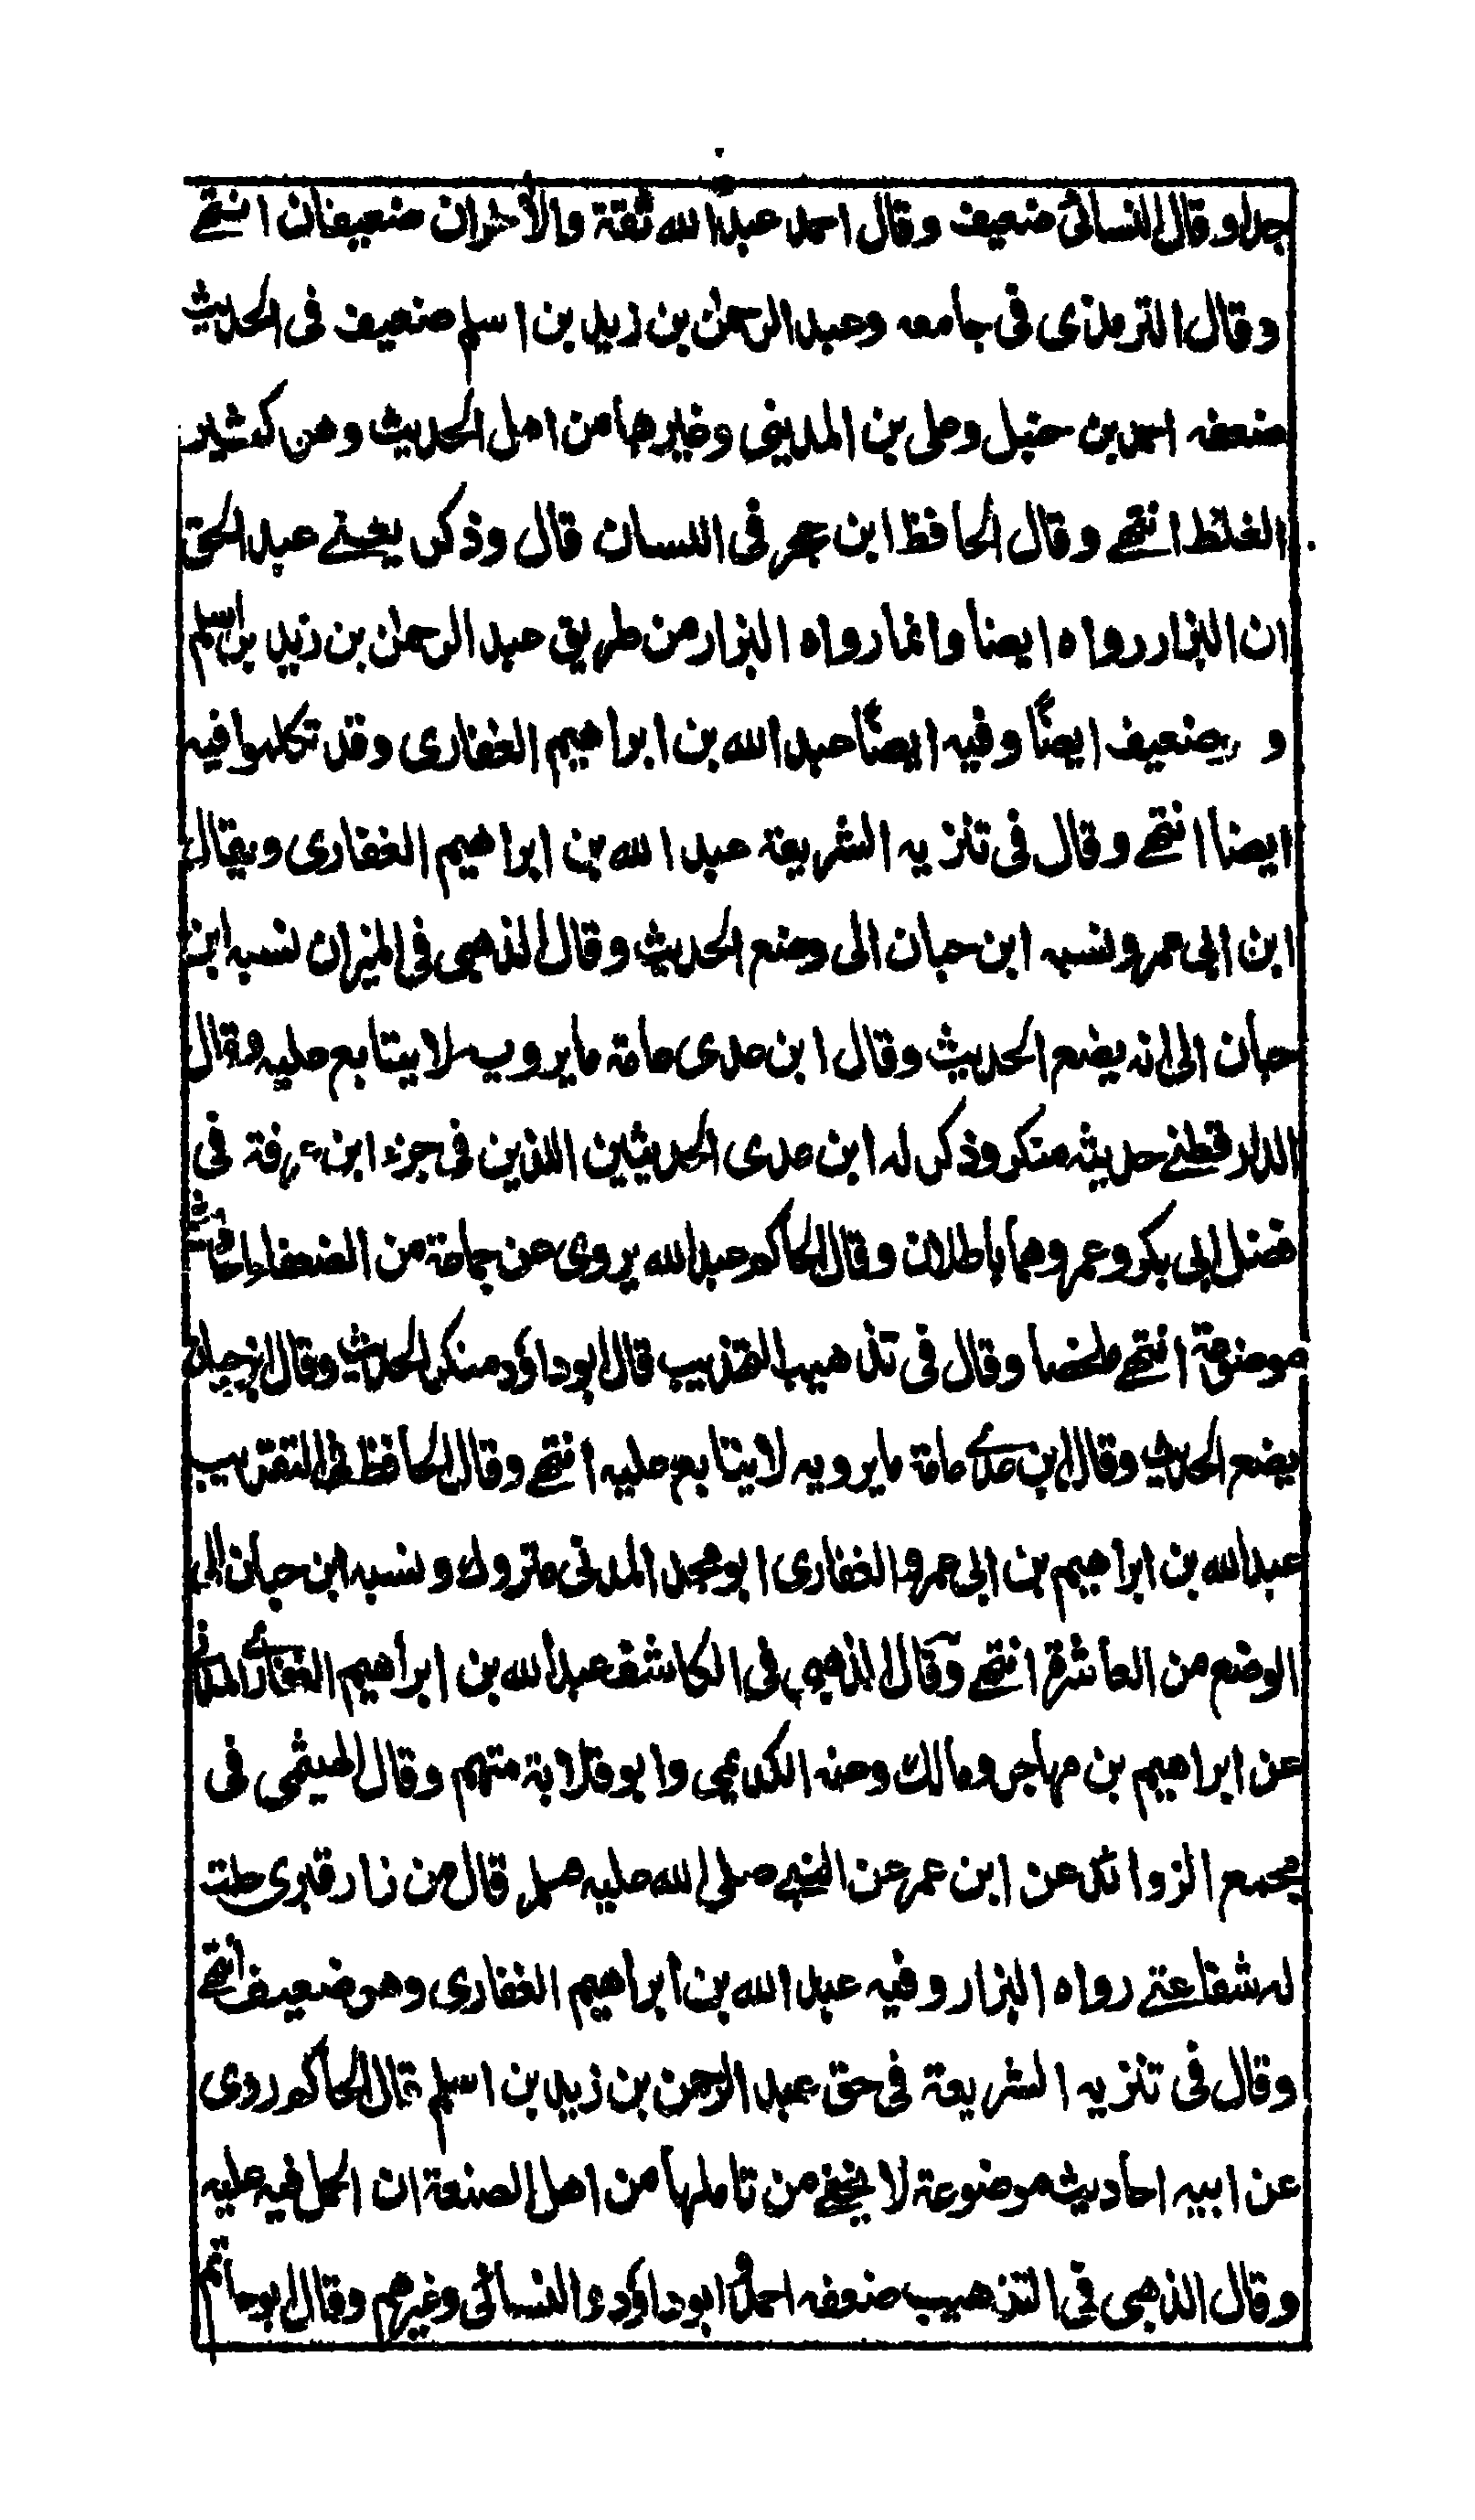 جدا وقال النسائي ضعيف وقال احمد عبد الله ثقة والأخران ضعيفان انتهى
وقال الترمذى فى جامعه وعبد الرحمن بن زيد بن اسلم ضعيف فى الحديث
ضعفه احمد بن حنبل وعلى بن المدينى وغيرهما من اهل الحديث وهو كثير
الغلط انتهى وقال الحافظ ابن حجر فى اللسان قال وذكر يعنى عبد الحق
ان البزار رواه ايضا وانما رواه البزار من طريق عبد الرحمن بن زيد بن اسلم
و ضعيف ايضًا وفيه ايضًا عبد الله بن ابراهيم الغفارى وقد تكلموا فيه
ايضا انتهى وقال فى تنزيه الشريعة عبد الله بن ابراهيم الغفارى ويقال
ابن ابى عمرو نسبه ابن حبان الى وضع الحديث وقال الذهبى فى الميزان نسبه ابن
حبان الى انه يضع الحديث وقال ابن عدى عامة ما يرويه لا يتابع عليه وقال
الدارقطنى حديثه منكر وذكر له ابن عدى الحديثين الذين فى جزء ابن عرفة فى
فضل ابى بكر وعمر وهما باطلان وقال الحاكم عبد الله يروى عن جماعة من الضعفاء احاديث
موضوعة انتهى ملخصا وقال فى تذهيب التهذيب قال ابو داؤد منكر الحديث وقال ابن حبان
يضع الحديث وقال ابن عدى عامة ما يرويه لا يتابع عليه انتهى وقال الحافظ فى التقريب
عبد الله بن ابراهيم بن ابى عمرو الغفارى ابو محمد المدنى متروك ونسبه ابن حبان الى
الوضع من العاشرة انتهى وقال الذهبى فى الكاشف عبد الله بن ابراهيم الغفارى المدنى
عن ابراهيم بن مهاجر ومالك وعنه الكديمى وابو قلابة متهم وقال الهيثمى فى
مجمع الزوائد عن ابن عمر عن النبى صلى الله عليه صلم قال من زار قبرى حلت
له شفاعتى رواه البزار وفيه عبد الله بن ابراهيم الغفارى وهو ضعيف انتهى
وقال فى تنزيه الشريعة فى حق عبد الرحمن بن زيد بن اسلم قال الحاكم روى
عن ابيه احاديث موضوعة لا يخفى من تاملها من اهل الصنعة ان الحمل فيه عليه
وقال الذهبى فى التذهيب ضعفه احمد ابو داؤد والنسائى وغيرهم وقال ابو حاتم